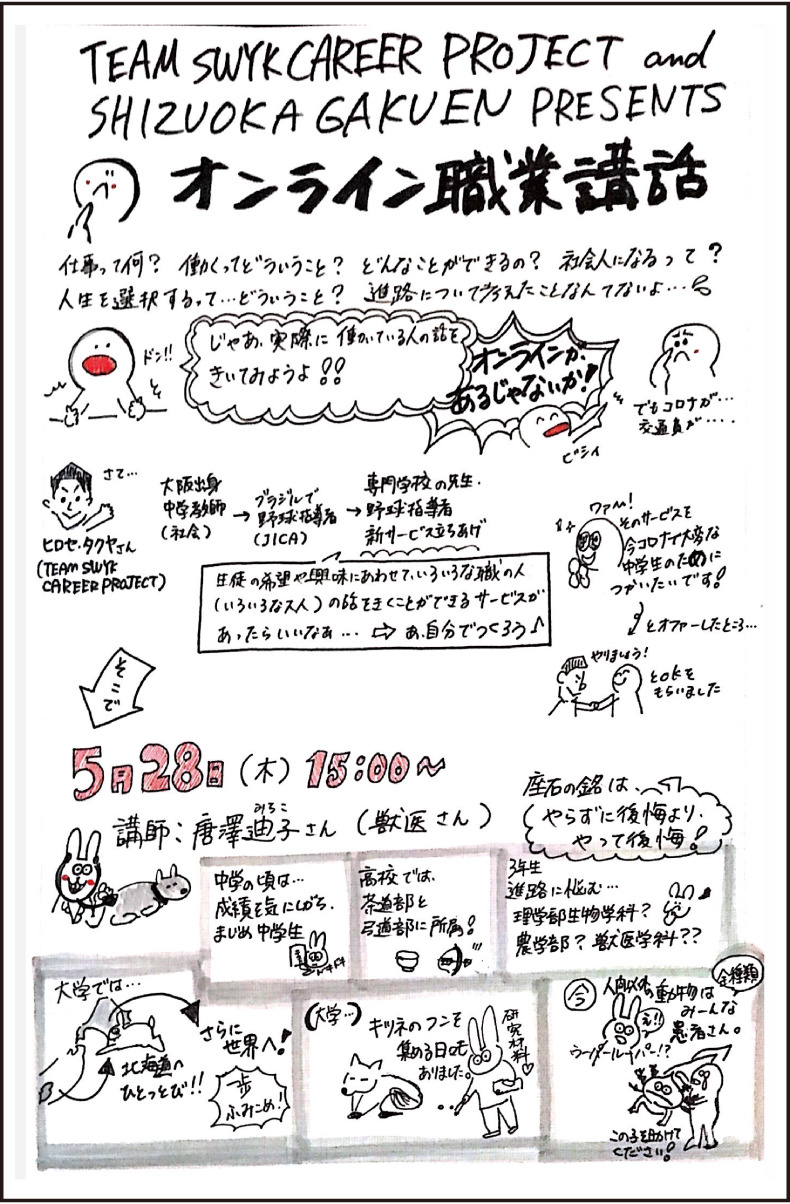 TEAM SWYK CAREER PROJECT and
SHIZUOKA GAKUEN PRESENTS
オンライン職業講話
仕事って何? 働くってどういうこと? どんなことができるの? 社会人になるって?
人生を選択するって…どういうこと? 進路について考えたことなんてないよ…
ドン!!
じゃあ、実際に働いている人の話を
きいてみようよ!!
オンラインが、
あるじゃないか!
ビシィ
でもコロナが…
交通費が…
さて…
ヒロセ・タクヤさん
(TEAM SWYK
CAREER PROJECT)
大阪出身
中学教師
(社会)
→
ブラジルで
野球指導者
(JICA)
→
専門学校の先生.
野球指導者
新サービス立ちあげ
生徒の希望や興味にあわせて、いろいろな職の人
(いろいろな大人)の話をきくことができるサービスが
あったらいいなぁ… ⇨ あ、自分でつくろう♪
ワァー!
そのサービスを
今コロナで大変な
中学生のために
つかいたいです!
とオファーしたところ…
やりましょう!
とOKを
もらいました
そこで
5月28日(木) 15:00〜
講師:唐澤迪子さん(獣医さん)
みちこ
座右の銘は、
やらずに後悔より、
やって後悔!
中学の頃は…
成績を気にしがち、
まじめ中学生
ドキドキ
高校では、
茶道部と
弓道部に所属!
3年生
進路に悩む…
理学部生物学科?
農学部? 獣医学科??
大学では…
北海道へ
ひとっとび!!
さらに
世界へ!
一歩
ふみこめ!
(大学…)
キツネのフンを
集める日々も
ありました。
研究材料♡
今
人間以外の動物は
みーんな
患者さん。
全種類
え!!
ウーパールーパー!?
この子を助けて
ください!